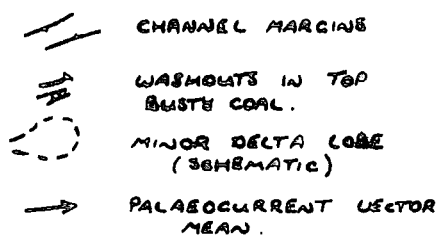 CHANNEL MARGINS
WASHOUTS IN TOP
BUSTY COAL.
MINOR DELTA LOBE
(SCHEMATIC)
PALAEOCURRENT VECTOR
MEAN.